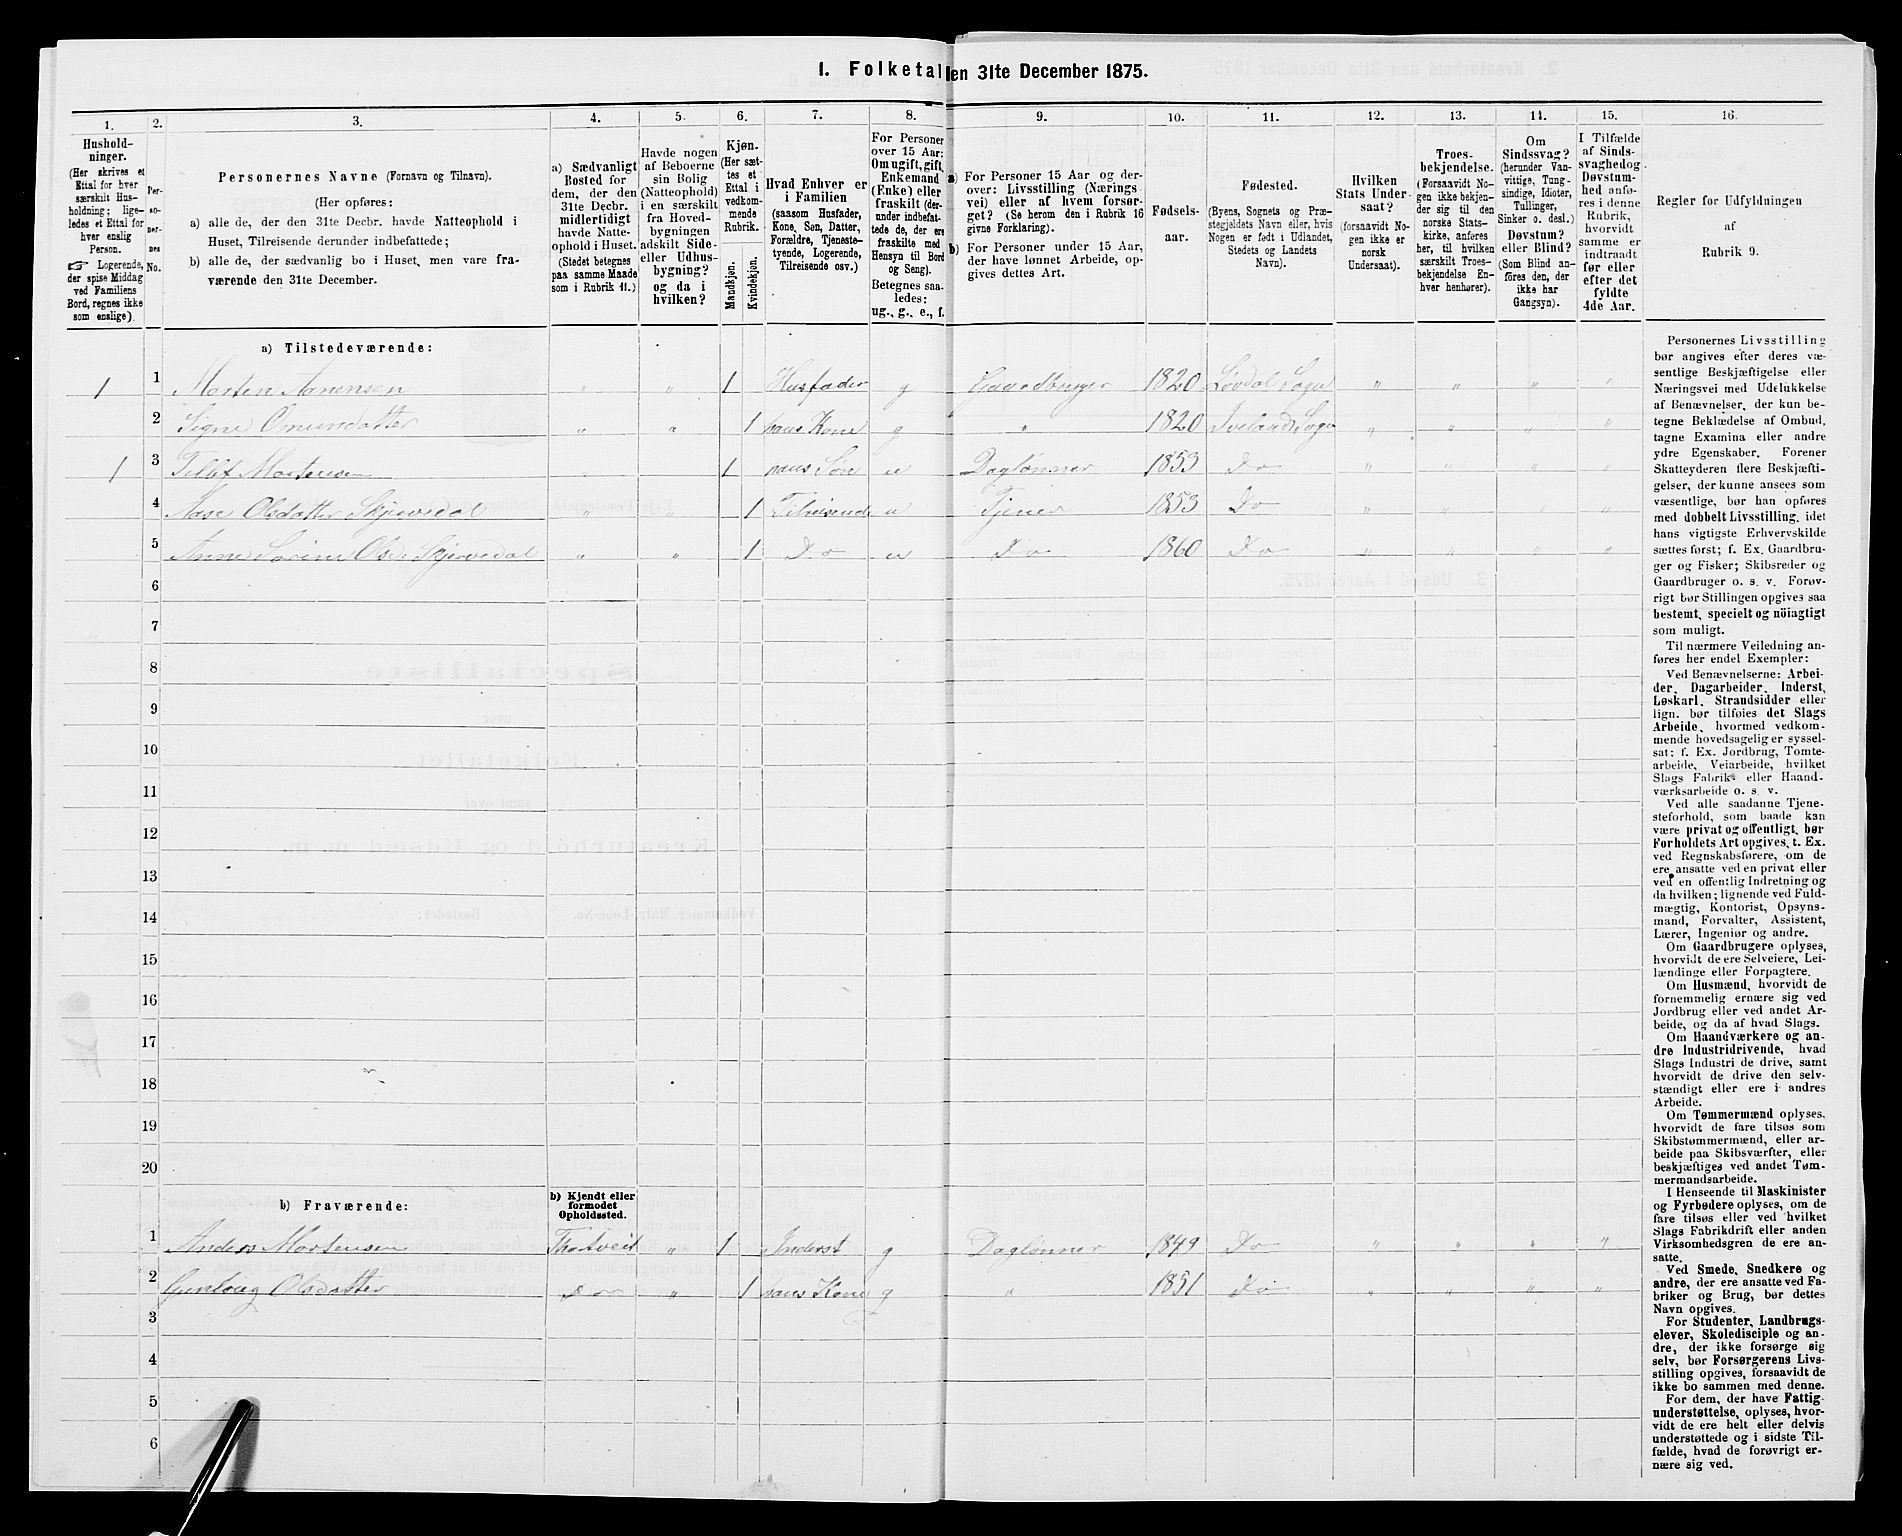 1. Folketal len 31te December 1875.
1. 2. 3. 4. 5. 6. 7. 8. 9. 10. 11. 12. 13. 14. 15. 16.
Hushold-
ninger.
(Her skrives et
Ettal for hver
særskilt Hus-
holdning; lige-
ledes et Ettal for
hver enslig
Person.
☞ Logerende,
der spise Middag
ved Familiens
Bord, regnes ikke
som enslige).
Per-
so-
ner-
nes
No.
Personernes Navne (Fornavn og Tilnavn).
(Her opføres:
a) alle de, der den 31te Decbr. havde Natteophold i
Huset, Tilreisende derunder indbefattede;
b) alle de, der sædvanlig bo i Huset, men vare fra-
værende den 31te December.
a) Sædvanligt
Bosted for
dem, der den
31te Decbr.
midlertidigt
havde Natte-
ophold i Huset.
(Stedet betegnes
paa samme Maade
som i Rubrik 11.)
Havde nogen
af Beboerne
sin Bolig
(Natteophold)
i en særskilt
fra Hoved-
bygningen
adskilt Side-
eller Udhus-
bygning?
og da i
hvilken?
Kjøn.
(Her sæt-
tes et
Ettal i
vedkom-
mende
Rubrik.
Mandkjøn.
Kvindekjøn.
Hvad Enhver er
i Familien
(saasom Husfader,
Kone, Søn, Datter,
Forældre, Tjeneste-
tyende, Logerende,
Tilreisende osv.)
For Personer
over 15 Aar:
Om ugift, gift,
Enkemand
(Enke) eller
fraskilt (der-
under indbefat-
tede de, der ere
fraskilte med
Hensyn til Bord
og Seng).
Betegnes saa-
ledes:
ug., g., e., f.
a) For Personer 15 Aar og der-
over: Livsstilling (Nærings
vei) eller af hvem forsør-
get? (Se herom den i Rubrik 16
givne Forklaring).
b) For Personer under 15 Aar,
der have lønnet Arbeide, op-
gives dettes Art.
Fødsels-
aar.
Fødested.
(Byens, Sognets og Præ-
stegjeldets Navn eller, hvis
Nogen er født i Udlandet,
Stedets og Landets
Navn).
Hvilken
Stats Under-
saat?
(forsaavidt No-
gen ikke er
norsk
Undersaat).
Troes-
bekjendelse.
(Forsaavidt No-
gen ikke bekjen-
der sig til den
norske Stats-
kirke, anføres
her, til hvilken
særskilt Troes-
bekjendelse En-
hver henhører).
Om
Sindssvag?
(herunder Van-
vittige, Tung-
sindige, Idioter,
Tullinger,
Sinker o. desl.)
Døvstum?
eller Blind?
(Som Blind an-
føres den, der
ikke har
Gangsyn).
I Tilfælde
af Sinds-
svaghed og
Døvstum-
hed anfø-
res i denne
Rubrik,
hvorvidt
samme er
indtraadt
før eller
efter det
fyldte
4de Aar.
Regler for Udfyldningen
af
Rubrik 9.
a) Tilstedeværende:
1 1 Morten Aanensen „ „ 1 Husfader g Gaardbruger 1820 Løvdal Sogn „ „ „ „
2 Signe Omundsdatter „ „ 1 hans Kone g „ 1820 Ivelands Sogn „ „ „ „
1 3 Tellef Mortensen „ „ 1 hans Søn u Daglønner 1853 Do „ „ „ „
4 Aase Olsdatter Skjervedal „ „ 1 Tilreisende u Tjener 1853 Do „ „ „ „
5 Anne Sorine Olsd: Skjervedal „ „ 1 Do u Do 1860 Do „ „ „ „
6
7
8
9
10
11
12
13
14
15
16
17
18
19
20
b) Fraværende:
b) Kjendt eller
formodet
Opholdssted.
1 Anders Mortensen Thortveit „ 1 Inderst g Daglønner 1849 Do „ „ „ „
2 Gunborg Olsdatter Do „ 1 hans Kone g „ 1851 Do „ „ „ „
3
4
5
6
Personernes Livsstilling
bør angives efter deres væ-
sentlige Beskjæftigelse eller
Næringsvei med Udelukkelse
af Benævnelser, der kun be-
tegne Beklædelse af Ombud,
tagne Examina eller andre
ydre Egenskaber. Forener
Skatteyderen flere Beskjæfti-
gelser, der kunne ansees som
væsentlige, bør han opføres
med dobbelt Livsstilling, idet
hans vigtigste Erhvervskilde
sættes først; f. Ex. Gaardbru-
ger og Fisker; Skibsreder og
Gaardbruger o. s. v. Forøv-
rigt bør Stillingen opgives saa
bestemt, specielt og nöiagtigt
som muligt.
Til nærmere Veiledning an-
føres her endel Exempler:
Ved Benævnelserne: Arbei-
der, Dagarbeider, Inderst,
Løskarl, Strandsidder eller
lign. bør tilføies det Slags
Arbeide, hvormed vedkom-
mende hovedsagelig er syssel-
sat; f. Ex. Jordbrug, Tomte-
arbeide, Veiarbeide, hvilket
Slags Fabrik- eller Haand-
værksarbeide o. s. v.
Ved alle saadanne Tjene-
steforhold, som baade kan
være privat og offentligt, bør
Forholdets Art opgives, t. Ex.
ved Regnskabsførere, om de
ere ansatte ved en privat eller
ved en offentlig Indretning og
da hvilken; lignende ved Fuld-
mægtig, Kontorist, Opsyns-
mand, Forvalter, Assistent,
Lærer, Ingeniør og andre.
Om Gaardbrugere oplyses,
hvorvidt de ere Selveiere, Lei-
lændinge eller Forpagtere.
Om Husmænd, hvorvidt de
fornemmelig ernære sig ved
Jordbrug eller ved andet Ar-
beide, og da af hvad Slags.
Om Haandværkere og an-
dre Industridrivende, hvad
Slags Industri de drive, samt
hvorvidt de drive den selv-
stændigt eller ere i andres
Arbeide.
Om Tømmermænd oplyses,
hvorvidt de fare tilsøs som
Skibstømmermænd, eller ar-
beide paa Skibsværfter, eller
beskjæftiges ved andet Tøm-
mermandsarbeide.
I Henseende til Maskinister
og Fyrbødere oplyses, om de
fare tilsøs eller ved hvilket
Slags Fabrikdrift eller anden
Virksomhedsgren de ere an-
satte.
Ved Smede, Snedkere og
andre, der ere ansatte ved Fa-
briker og Brug, bør dettes
Navn opgives.
For Studenter, Landbrugs-
elever, Skoledisciple og an-
dre, der ikke forsørge sig
selv, bør Forsørgerens Livs-
stilling opgives, forsaavidt de
ikke bo sammen med denne.
For dem, der have Fattig-
understøttelse, oplyses, hvor-
vidt de ere helt eller delvis
understøttede og i sidste Til-
fælde, hvad de forøvrigt er-
nære sig ved.